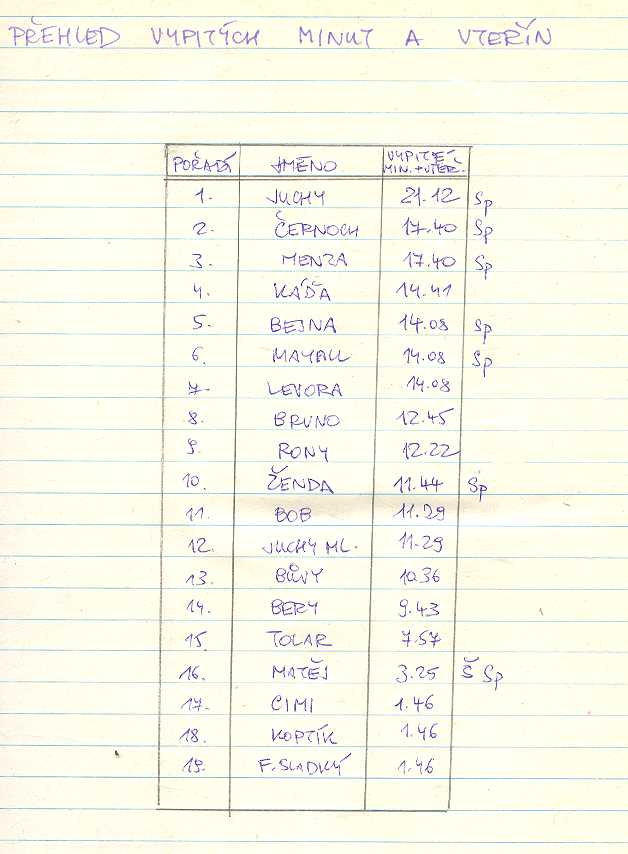 PŘEHLED VYPITÝCH MINUT A VTEŘIN
POŘADÍ JMÉNO VYPITÉ MIN. + VTEŘ.
1. JUCHY 21.12 Sp
2. ČERNOCH 17.40 Sp
3. MENZA 17.40 Sp
4. KÁĎA 14.41
5. BEJNA 14.08 Sp
6. MAYALL 14.08 Sp
7. LEVORA 14.08
8. BRUNO 12.45
9. RONY 12.22
10. ŽENDA 11.44 Sp
11. BOB 11.29
12. JUCHY ML. 11.29
13. BŮVY 10.36
14. BERY 9.43
15. TOLAR 7.57
16. MATĚJ 3.25 Š Sp
17. CIMI 1.46
18. KOPTÍK 1.46
19. F. SLADKÝ 1.46